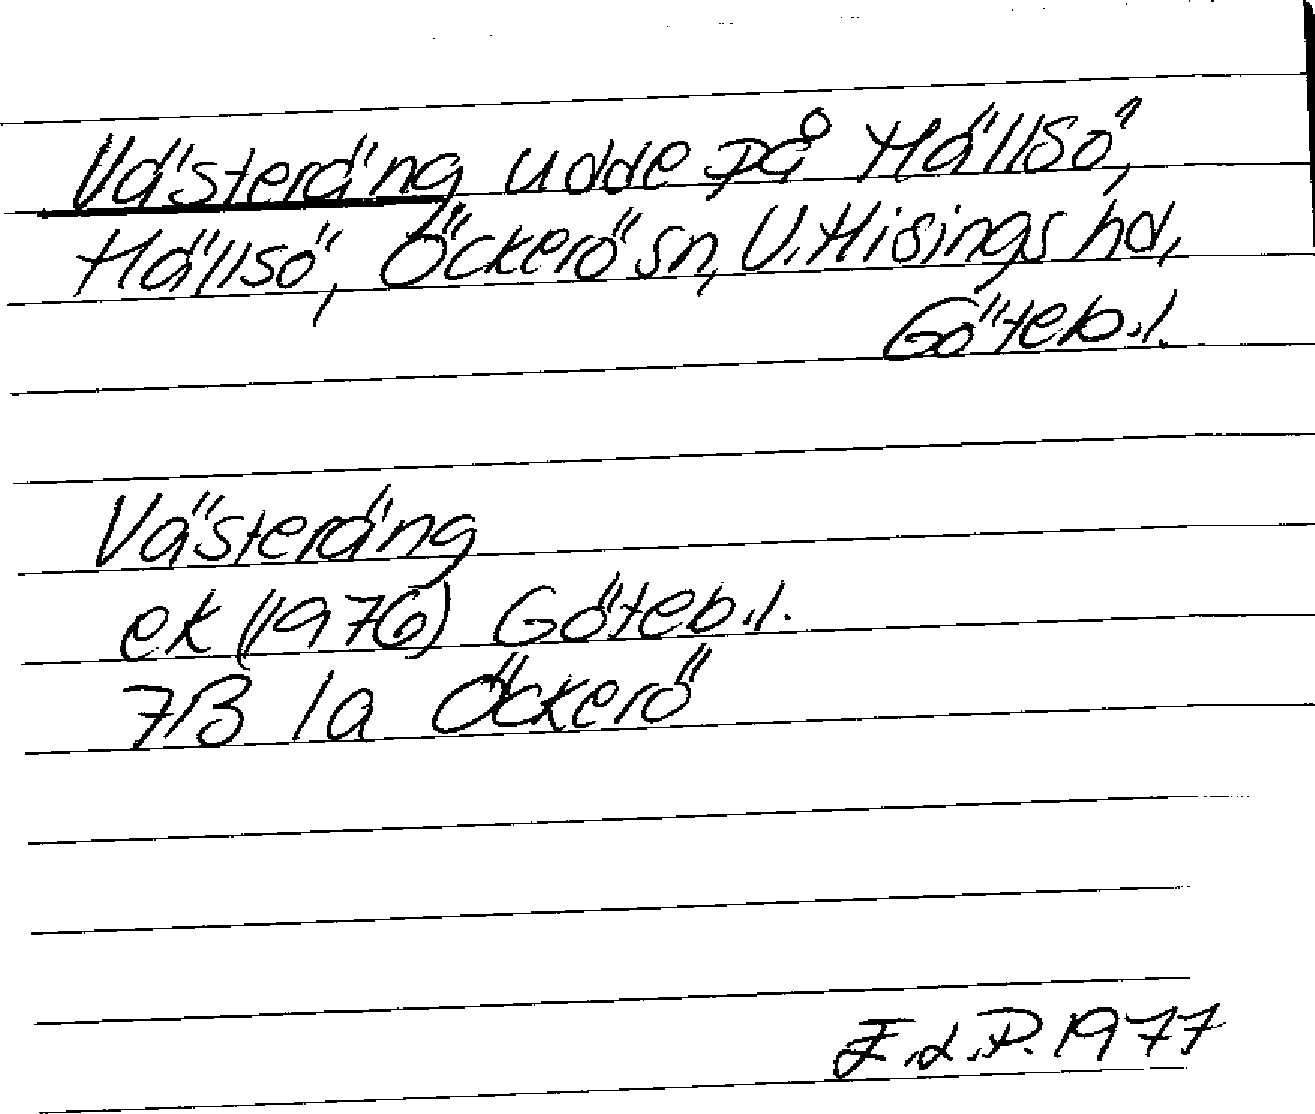 Västeräng udde på Hällsö,
Hällsö, Öckerö sn, V. Hisings hd,
Göteb. l.
Västeräng
ek (1976) Göteb. l.
7B 1a Öckerö
1977